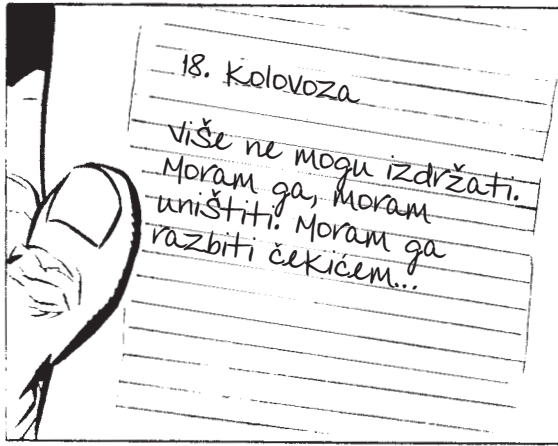 18. Kolovoza
Više ne mogu izdržati.
Moram ga, moram
uništiti. Moram ga
razbiti čekićem...